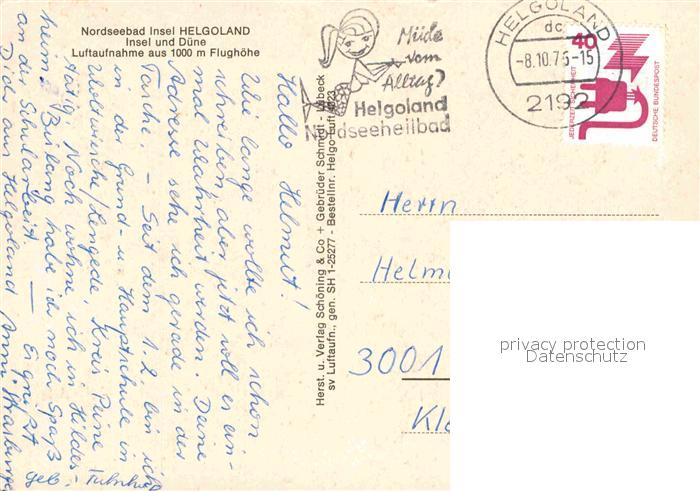 Nordseebad Insel HELGOLAND
Insel und Düne
Luftaufnahme aus 1000 m Flughöhe
Müde
vom
Alltag?
Helgoland
Nordseeheilbad
HELGOLAND
dc
-8.10.76-15
2192
40
JEDERZEIT SICHERHEIT
DEUTSCHE BUNDESPOST
Hallo Helmut!
Wie lange wollte ich schon
schreiben, aber jetzt soll es ein-
mal Wahrheit werden. Deine
Adresse sehe ich gerade in der
Tasche – Seit dem 1.2. bin ich
in der Grund- u. Hauptschule in
/Lengede, Kreis Peine
tätig. Noch wohne ich in Hildes-
heim. Bislang habe ich noch Spaß
an der Schularbeit — Es grüßt
Dich aus Helgoland
geb.
Herst. u. Verlag Schöning & Co + Gebrüder Schmidt - Lübeck
sv Luftaufn., gen. SH 1-25277 - Bestellnr. Helgo Luft
Herrn
Helm
3001
Kl
privacy protection
Datenschutz